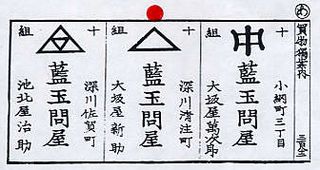 め
買物獨案内
十組
小網町三丁目
藍玉問屋
大坂屋萬次郎
十組
深川清住町
藍玉問屋
大坂屋新助
十組
深川佐賀町
藍玉問屋
池北屋治助